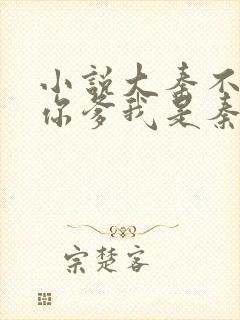 小说大秦不
你爹我是秦
宗楚客